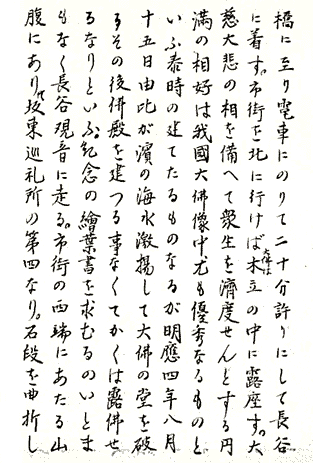 橋に至り電車にのりて二十分許りにして長谷
に着す。市街を北に行けば大佛は木立の中に露座す。大
慈大悲の相を備へて衆生を濟度せんとする円
満の相好は我國大佛像中尤も優秀なるものと
いふ泰時の建てたるものなるが明應四年八月
十五日由比が濱の海水激揚して大佛の堂を破
りその後佛殿を建つる事なくてかくは露佛せ
るなりといふ。紀念の繪葉書を求むるのいとま
もなく長谷観音に走る。市街の西端にあたる山
腹にあり。坂東巡礼所の第四なり。石段を曲折し